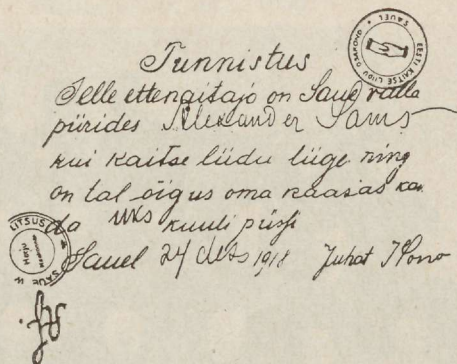 Tunnistus
Selle ettenäitaja on Saue valla
piirides Alexander Sams
kui kaitse liidu liige ning
on tal õigus oma kaasas kan
da üks kuuli püssi
Sauel 24 dets 1918 Juhat
EESTI KAITSE LIIDU OSAKOND * SAUEL *
SAUE W
Harju